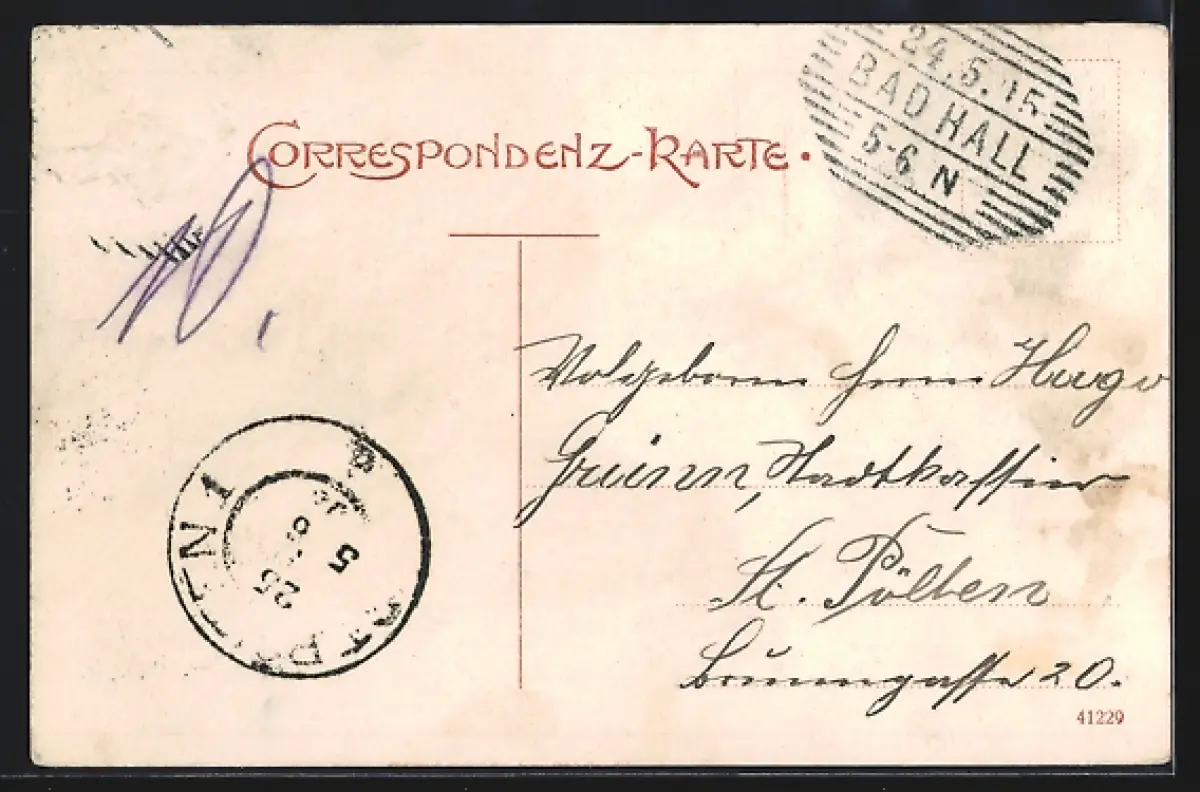 CORRESPONDENZ-KARTE.
24.5.15
BAD HALL
5-6 N
Wolgeboren Herrn Hugo
Grünn, Stadtkassier
St. Pölten
Brunngasse 20.
41229
25
5